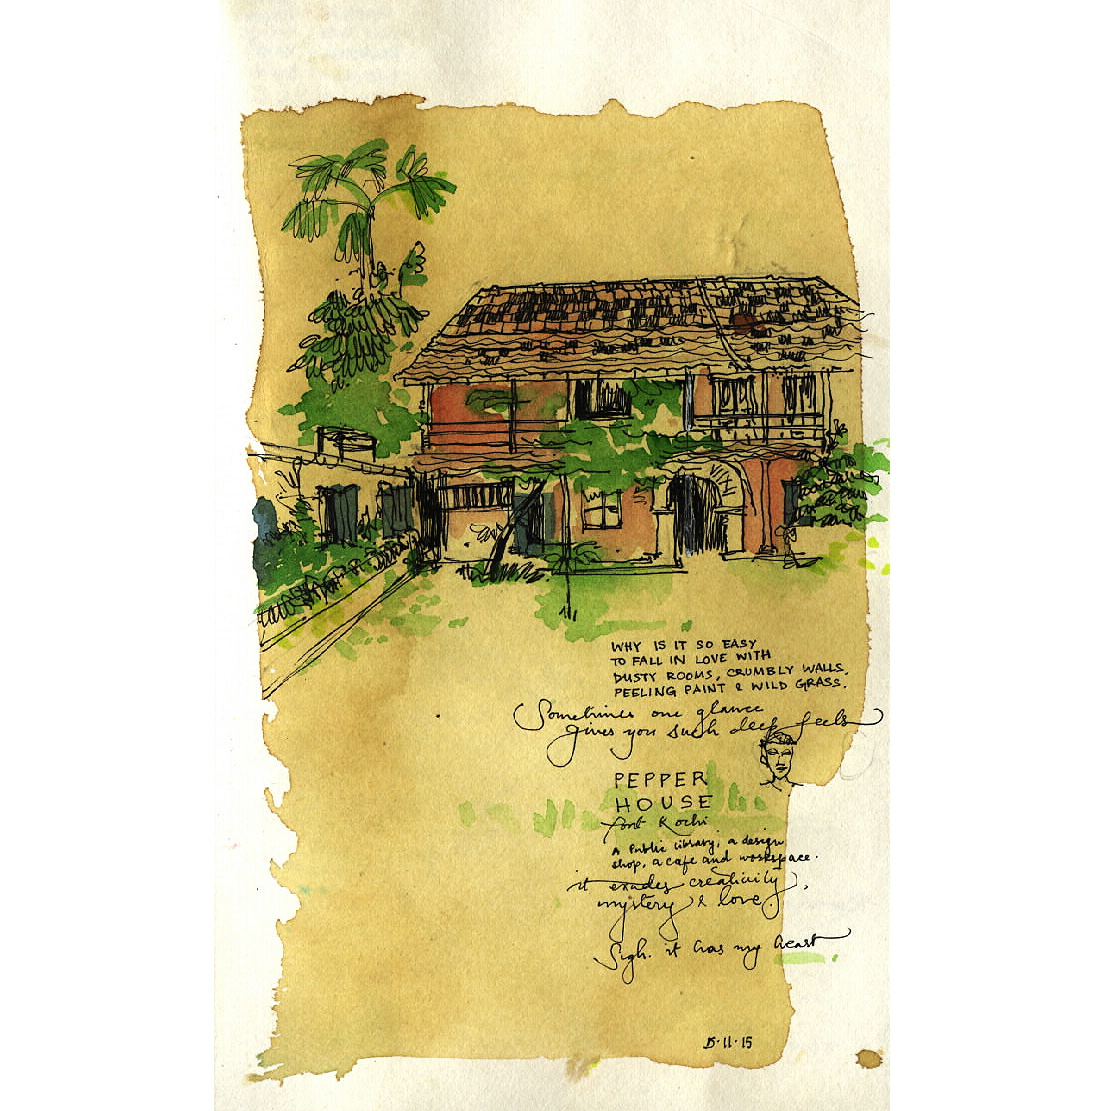 WHY IS IT SO EASY
TO FALL IN LOVE WITH
DUSTY ROOMS, CRUMBLY WALLS,
PEELING PAINT & WILD GRASS.
Sometimes one glance
gives you such deep feels
PEPPER
HOUSE
fort Kochi
A Public library, a design
shop, a cafe and workspace.
it exudes creativity,
mystery & love.
Sigh. it has my heart
15·11·15